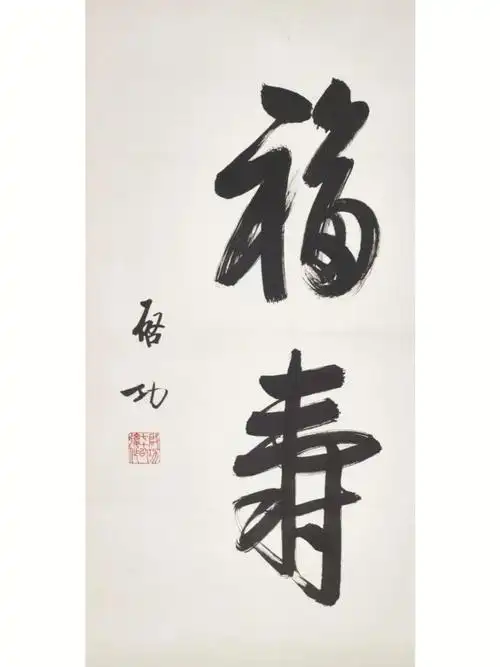 福寿
启功